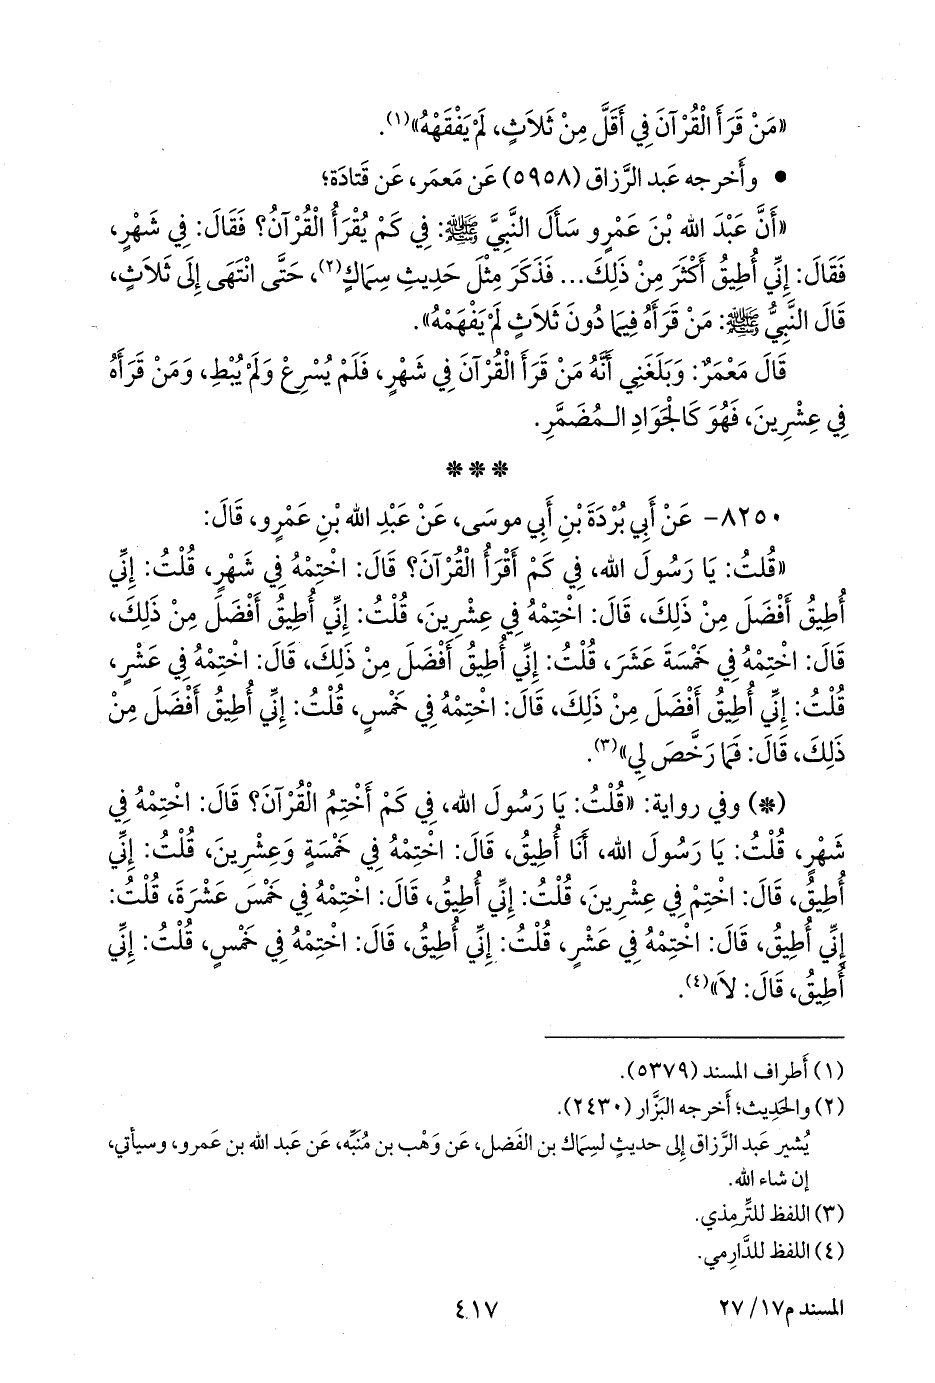 «مَنْ قَرَأَ الْقُرْآنَ فِي أَقَلَّ مِنْ ثَلاَثٍ، لَمْ يَفْقَهْهُ»(١).
• وأَخرجه عَبد الرَّزاق (٥٩٥٨) عَن مَعمَر، عَن قَتادَة؛
«أَنَّ عَبْدَ الله بْنَ عَمْرٍو سَأَلَ النَّبِيَّ ﷺ: فِي كَمْ يُقْرَأُ الْقُرْآنُ؟ فَقَالَ: فِي شَهْرٍ،
فَقَالَ: إِنِّي أُطِيقُ أَكْثَرَ مِنْ ذَلِكَ... فَذَكَرَ مِثْلَ حَدِيثِ سِمَاكٍ(٢)، حَتَّى انْتَهَى إِلَى ثَلاَثٍ،
قَالَ النَّبِيُّ ﷺ: مَنْ قَرَأَهُ فِيمَا دُونَ ثَلاَثٍ لَمْ يَفْهَمْهُ».
قَالَ مَعْمَرٌ: وَبَلَغَنِي أَنَّهُ مَنْ قَرَأَ الْقُرْآنَ فِي شَهْرٍ، فَلَمْ يُسْرِعْ وَلَمْ يُبْطِ، وَمَنْ قَرَأَهُ
فِي عِشْرِينَ، فَهُوَ كَالْجَوَادِ الـمُضَمَّرِ.
* * *
٨٢٥٠- عَنْ أَبِي بُرْدَةَ بْنِ أَبِي موسَى، عَنْ عَبْدِ الله بْنِ عَمْرٍو، قَالَ:
«قُلتُ: يَا رَسُولَ الله، فِي كَمْ أَقْرَأُ الْقُرْآنَ؟ قَالَ: اخْتِمْهُ فِي شَهْرٍ، قُلْتُ: إِنِّي
أُطِيقُ أَفْضَلَ مِنْ ذَلِكَ، قَالَ: اخْتِمْهُ فِي عِشْرِينَ، قُلْتُ: إِنِّي أُطِيقُ أَفْضَلَ مِنْ ذَلِكَ،
قَالَ: اخْتِمْهُ فِي خَمْسَةَ عَشَرَ، قُلْتُ: إِنِّي أُطِيقُ أَفْضَلَ مِنْ ذَلِكَ، قَالَ: اخْتِمْهُ فِي عَشْرٍ،
قُلْتُ: إِنِّي أُطِيقُ أَفْضَلَ مِنْ ذَلِكَ، قَالَ: اخْتِمْهُ فِي خَمْسٍ، قُلْتُ: إِنِّي أُطِيقُ أَفْضَلَ مِنْ
ذَلِكَ، قَالَ: فَمَا رَخَّصَ لِي»(٣).
(*) وفي رواية: «قُلْتُ: يَا رَسُولَ الله، فِي كَمْ أَخْتِمُ الْقُرْآنَ؟ قَالَ: اخْتِمْهُ فِي
شَهْرٍ، قُلْتُ: يَا رَسُولَ الله، أَنَا أُطِيقُ، قَالَ: اخْتِمْهُ فِي خَمْسَةٍ وَعِشْرِينَ، قُلْتُ: إِنِّي
أُطِيقُ، قَالَ: اخْتِمْ فِي عِشْرِينَ، قُلْتُ: إِنِّي أُطِيقُ، قَالَ: اخْتِمْهُ فِي خَمْسَ عَشْرَةَ، قُلْتُ:
إِنِّي أُطِيقُ، قَالَ: اخْتِمْهُ فِي عَشْرٍ، قُلْتُ: إِنِّي أُطِيقُ، قَالَ: اخْتِمْهُ فِي خَمْسٍ، قُلْتُ: إِنِّي
أُطِيقُ، قَالَ: لاَ»(٤).
(١) أَطراف المسند (٥٣٧٩).
(٢) والحَدِيث؛ أَخرجه البَزَّار (٢٤٣٠).
يُشير عَبد الرَّزاق إِلى حديثٍ لسِمَاك بن الفَضل، عَن وَهْب بن مُنَبِّه، عَن عَبد الله بن عَمرو، وسيأتي،
إن شاء الله.
(٣) اللفظ للتِّرمِذي.
(٤) اللفظ للدَّارِمي.
المسند م١٧/ ٢٧
٤١٧